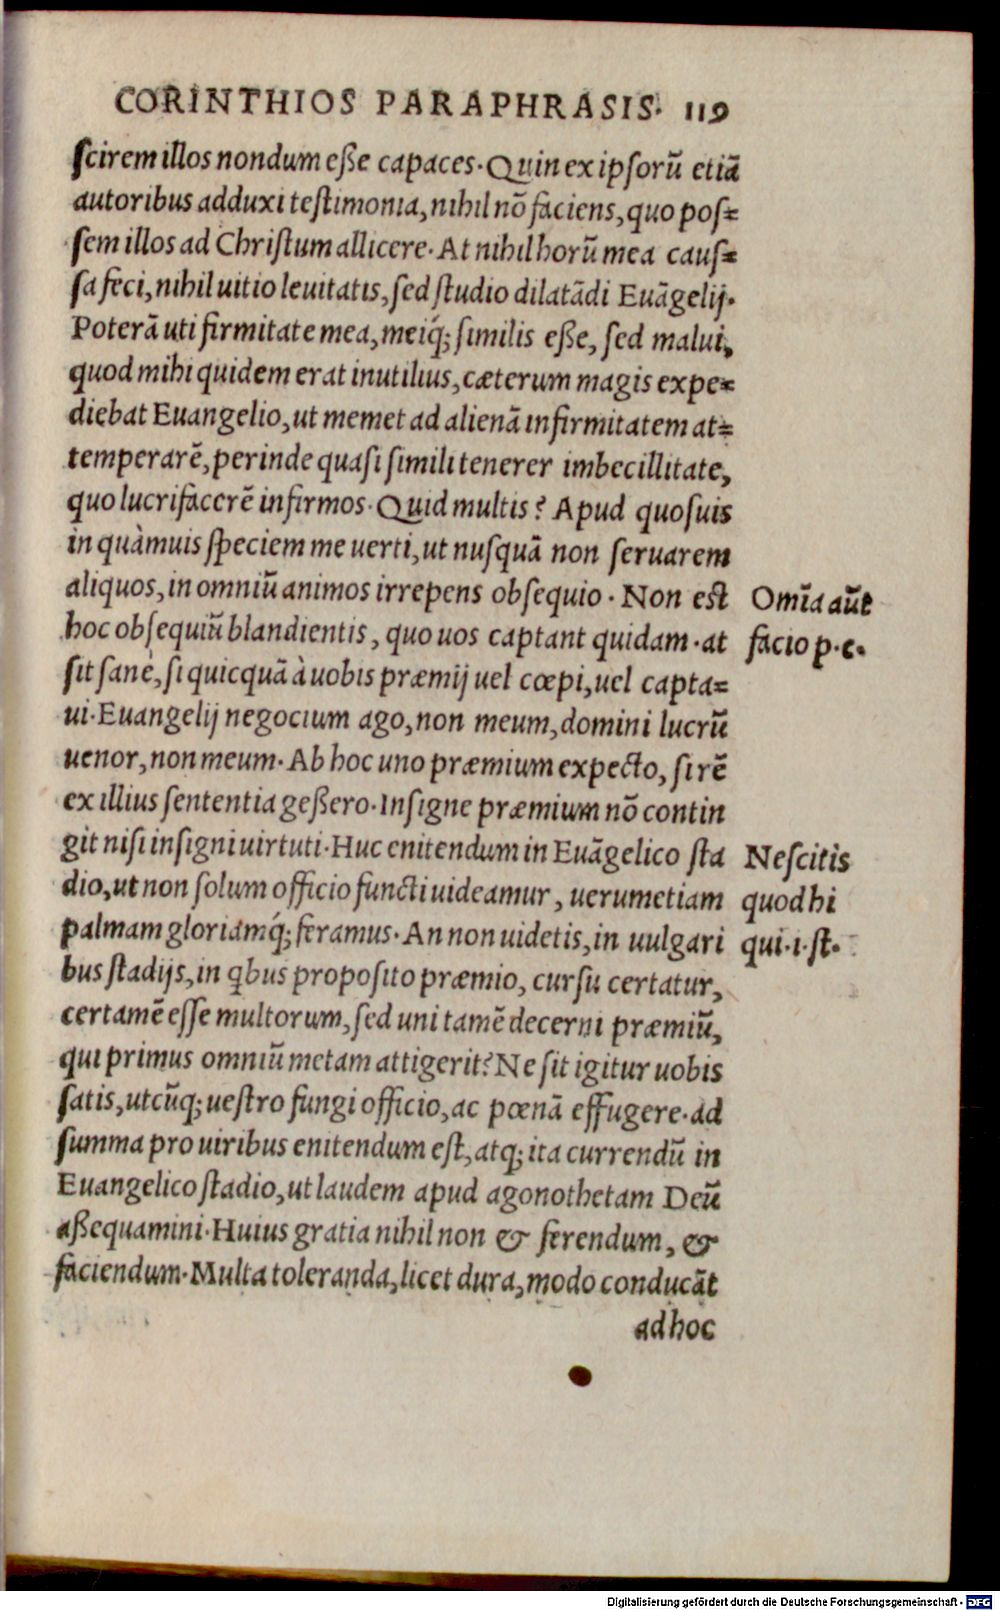 CORINTHIOS PARAPHRASIS. 119
scirem illos nondum eße capaces. Quin ex ipsorũ etiã
autoribus adduxi testimonia, nihil nõ faciens, quo pos=
sem illos ad Christum allicere. At nihil horũ mea caus=
sa feci, nihil uitio leuitatis, sed studio dilatãdi Euãgelij.
Poterã uti firmitate mea, meiq́; similis eße, sed malui,
quod mihi quidem erat inutilius, cæterum magis expe=
diebat Euangelio, ut memet ad alienã infirmitatem at=
temperarẽ, perinde quasi simili tenerer imbecillitate,
quo lucrifacerẽ infirmos. Quid multis? Apud quosuis
in quàmuis speciem me uerti, ut nusquã non seruarem
aliquos, in omniũ animos irrepens obsequio. Non est
hoc obsequiũ blandientis, quo uos captant quidam. at
sit sanè, si quicquã à uobis præmij uel cœpi, uel capta=
ui. Euangelij negocium ago, non meum, domini lucrũ
uenor, non meum. Ab hoc uno præmium expecto, si rẽ
ex illius sententia geßero. Insigne præmium nõ contin
git nisi insigni uirtuti. Huc enitendum in Euãgelico sta
dio, ut non solum officio functi uideamur, uerumetiam
palmam gloriamq́; feramus. An non uidetis, in uulgari
bus stadijs, in q̃bus proposito præmio, cursu certatur,
certamẽ esse multorum, sed uni tamẽ decerni præmiũ,
qui primus omniũ metam attigerit? Ne sit igitur uobis
satis, utcũq; uestro fungi officio, ac pœnã effugere. ad
summa pro uiribus enitendum est, atq; ita currendũ in
Euangelico stadio, ut laudem apud agonothetam Deũ
aßequamini. Huius gratia nihil non & ferendum, &
faciendum. Multa toleranda, licet dura, modo conducãt
ad hoc
Omĩa aũt
facio p.c.
Nescitis
quod hi
qui.i.st.
Digitalisierung gefördert durch die Deutsche Forschungsgemeinschaft - DFG